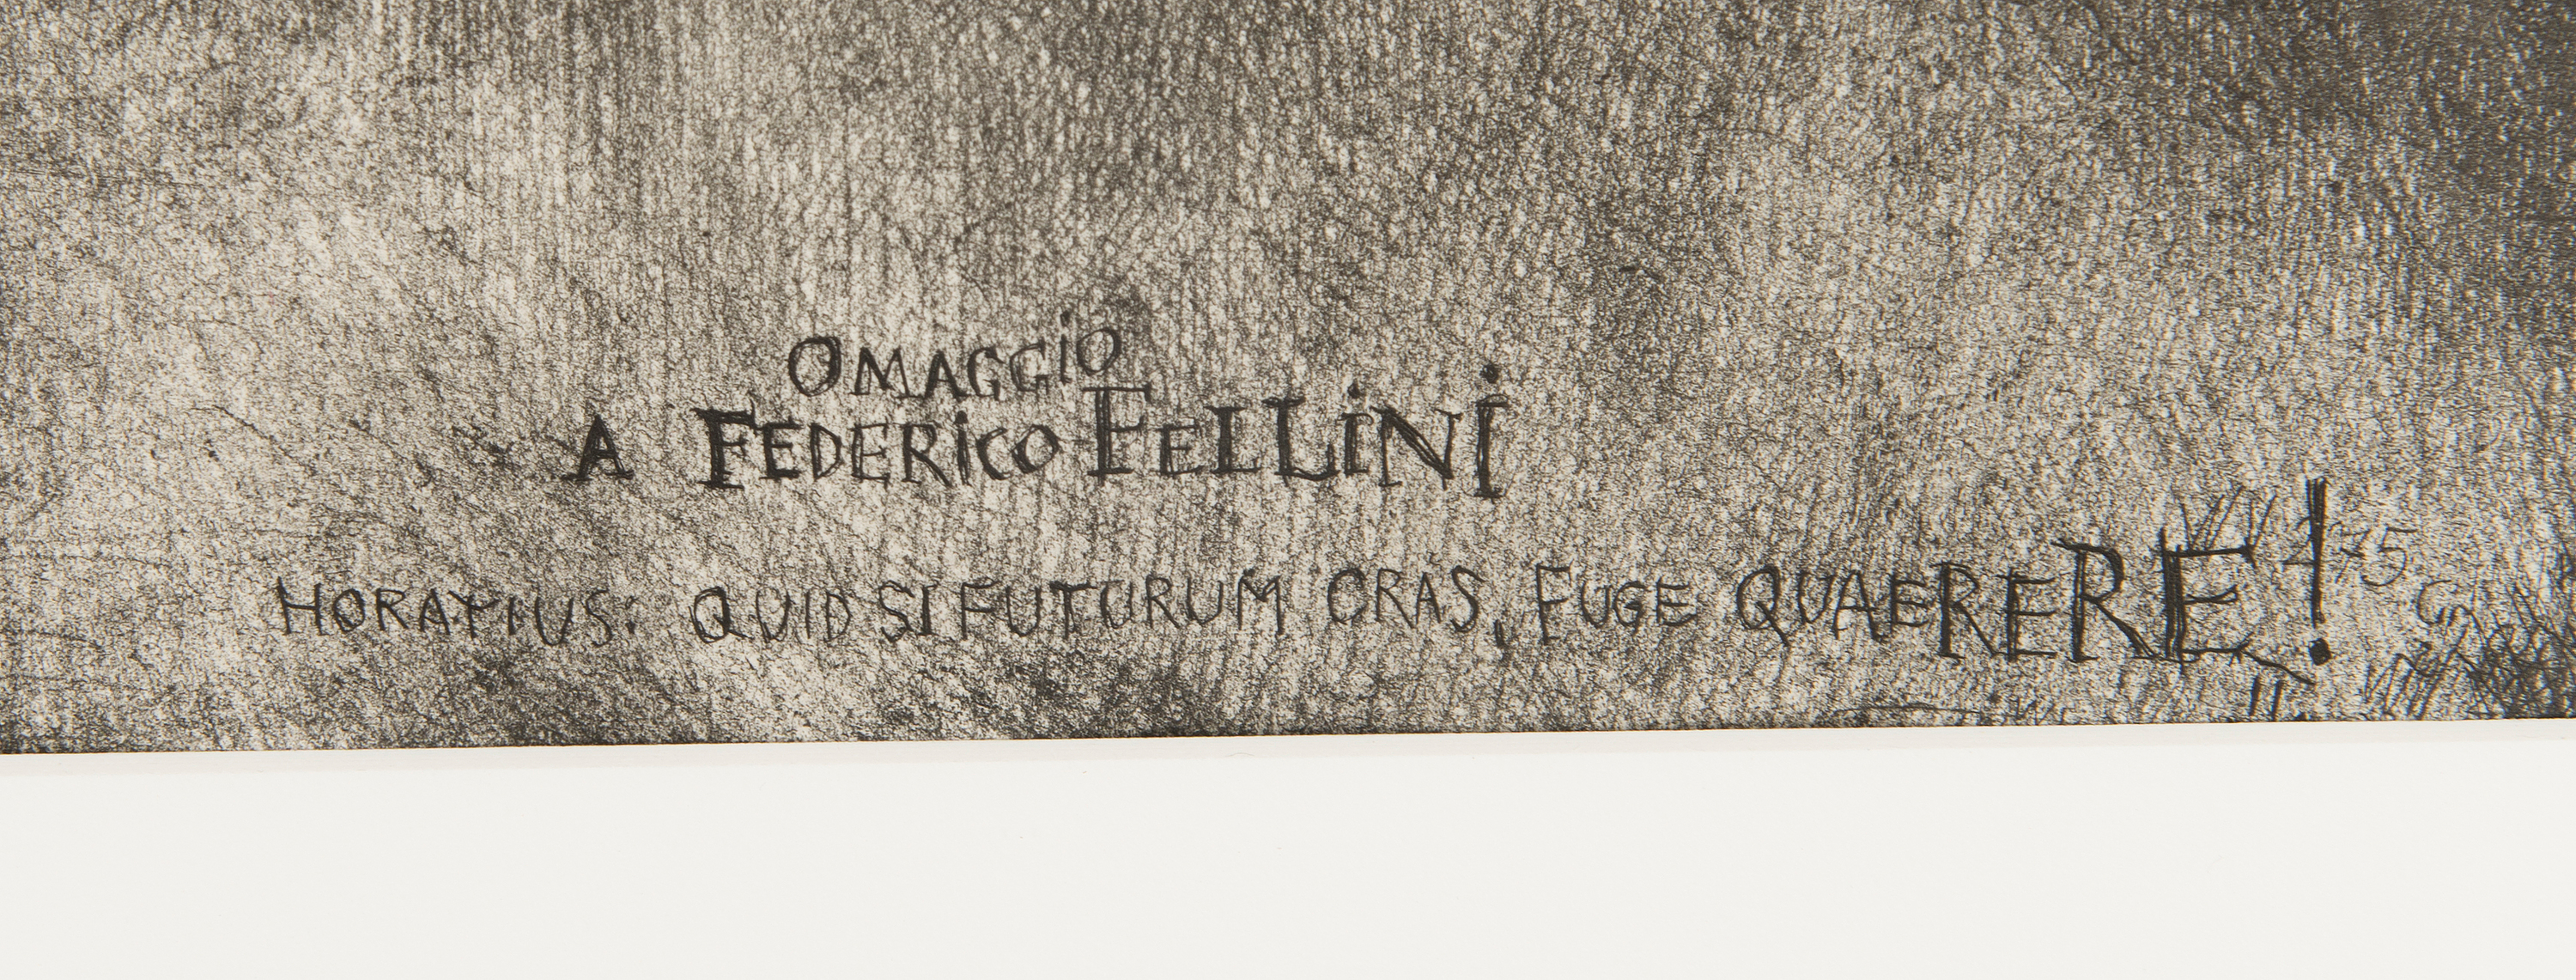 OMAGGiO
A FEDERiCO FELLiNi
HORATIUS: QUID SI FUTURUM CRAS, FUGE QUAERERE!